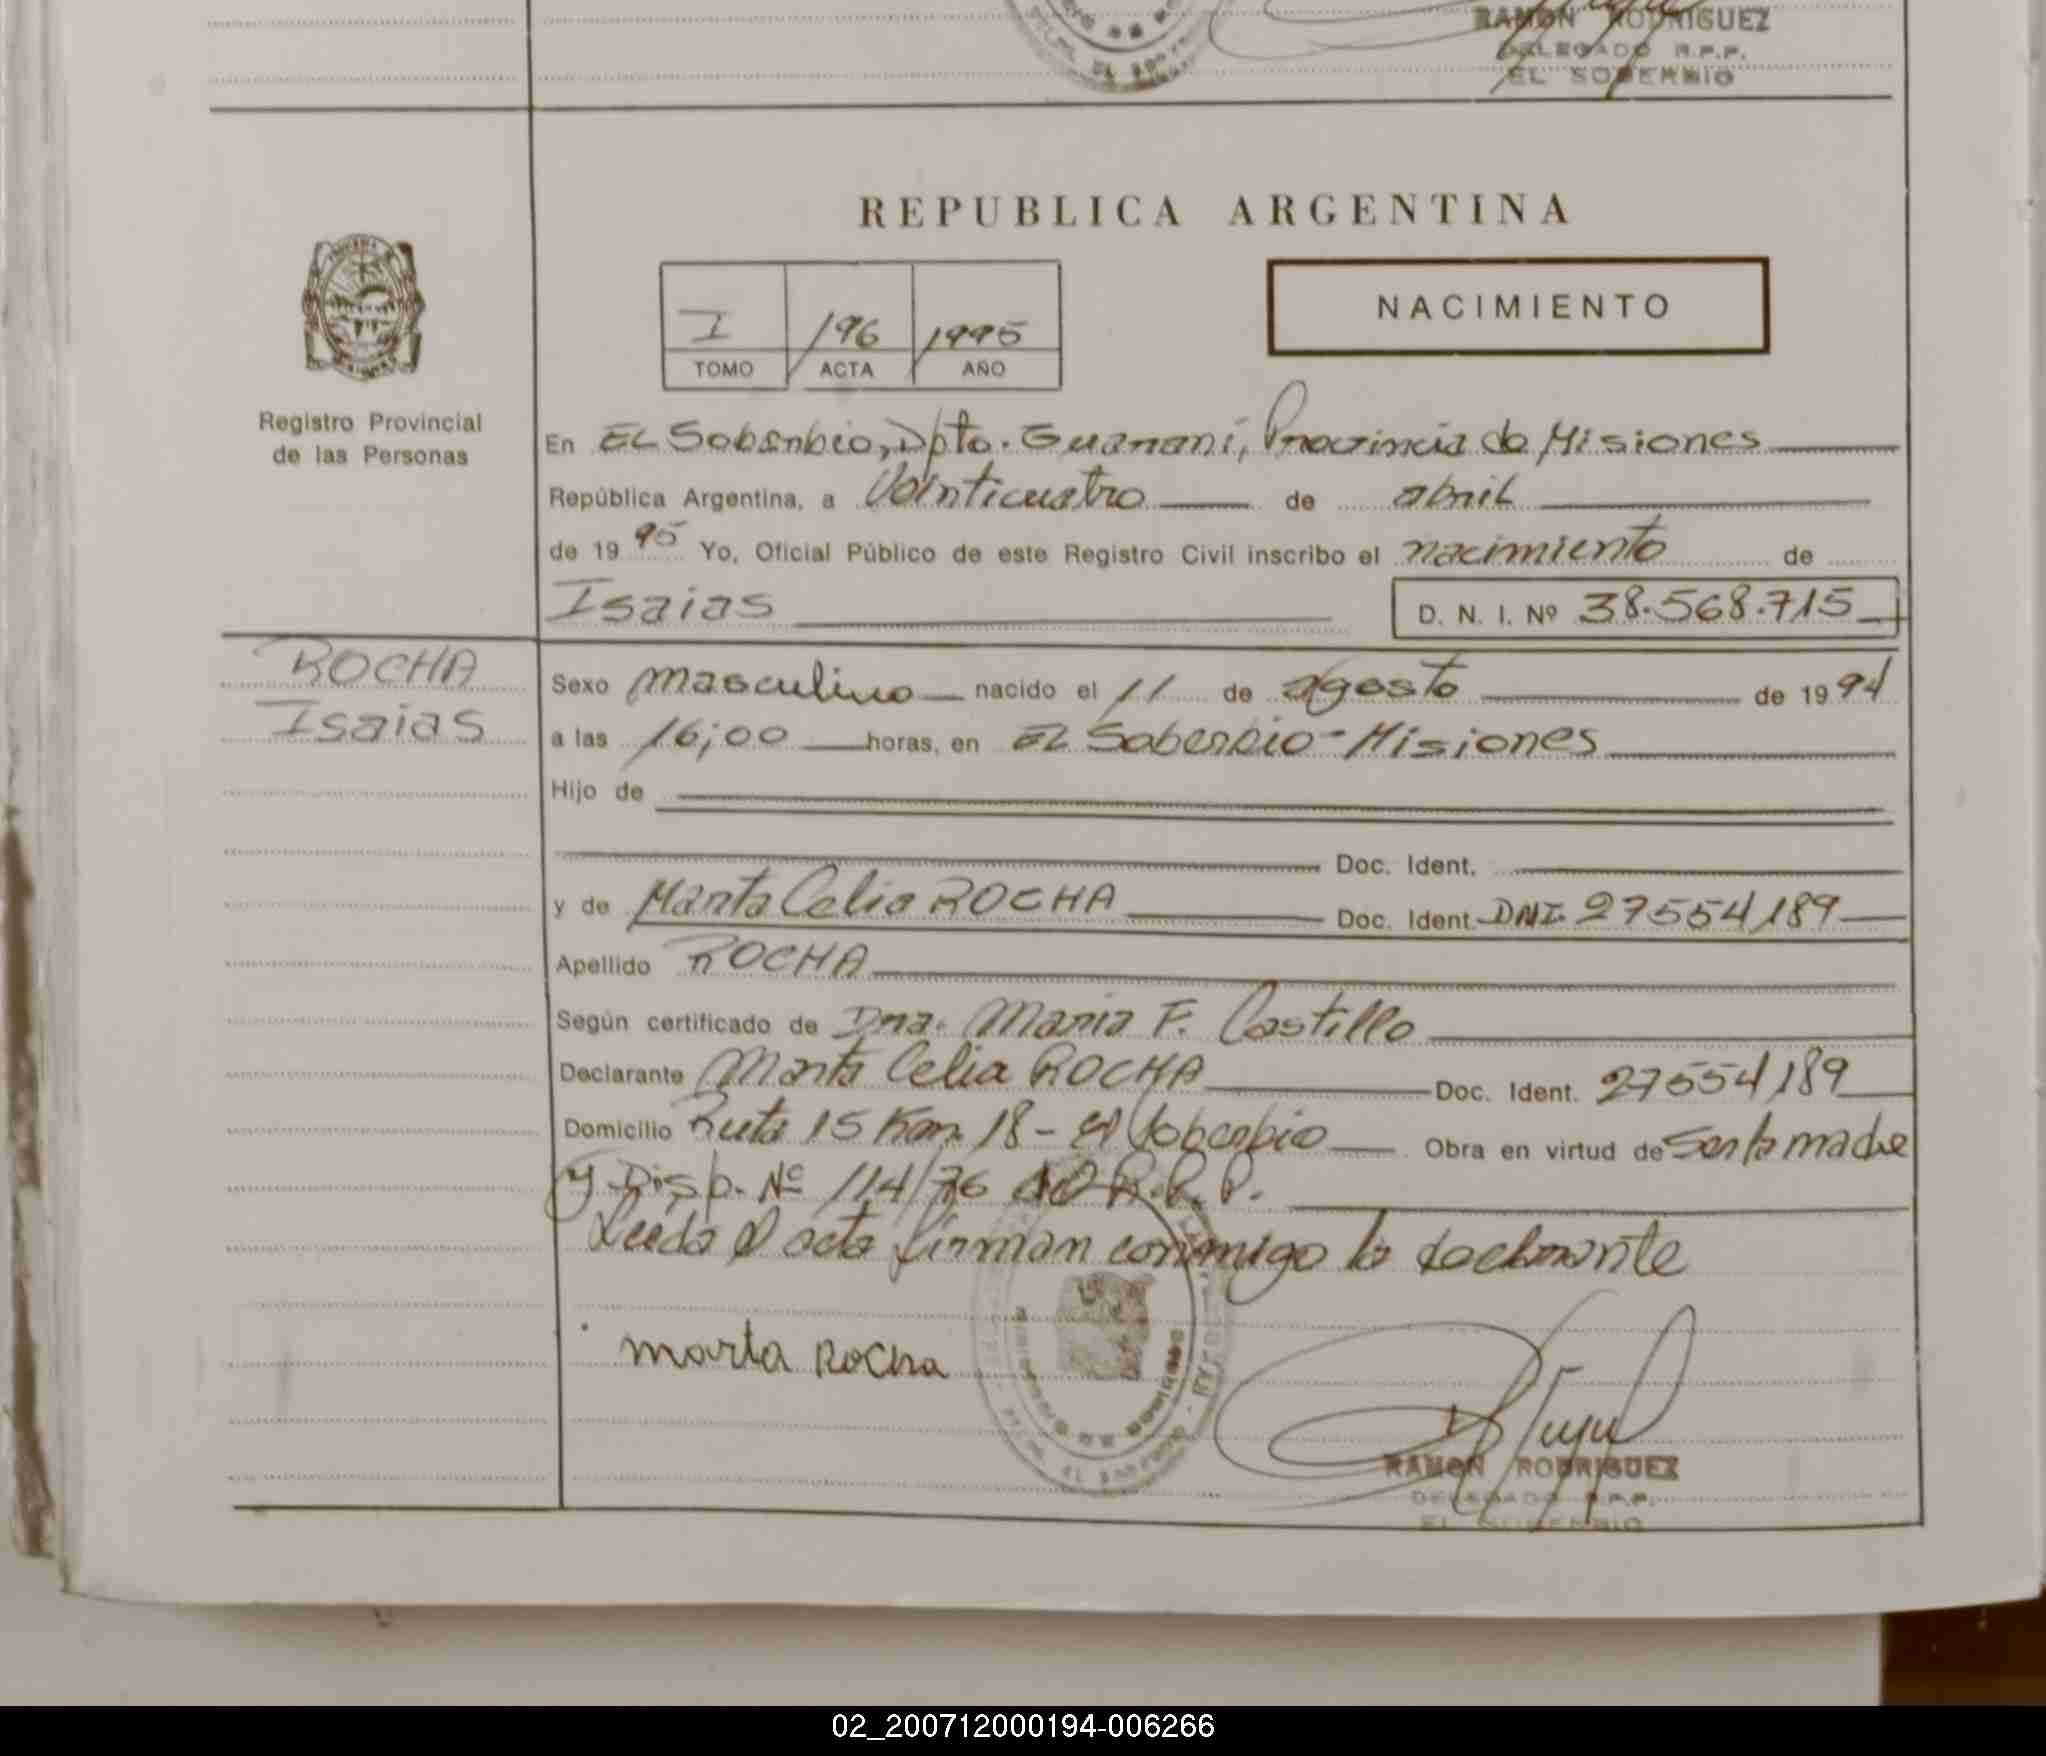 RAMON RODRIGUEZ
DELEGADO R.P.P.
EL SOBERBIO
REPUBLICA ARGENTINA
NACIMIENTO
I 196 1995
TOMO ACTA AÑO
Registro Provincial
de las Personas
En EL Soberbio, Dpto. Guarani, Provincia de Misiones
República Argentina, a Veinticuatro de abril
de 19 95 Yo, Oficial Público de este Registro Civil inscribo el nacimiento de
Isaias D. N. I. Nº 38.568.715
ROCHA
Isaias
Sexo masculino nacido el 11 de agosto de 19 94
a las 16;00 horas, en EL Soberbio - Misiones
Hijo de
Doc. Ident.
y de Marta Celia ROCHA Doc. Ident. DNI 27554189
Apellido ROCHA
Según certificado de Dna. Maria F. Castillo
Declarante Marta Celia ROCHA Doc. Ident. 27554189
Domicilio Ruta 15 Km 18 - El Soberbio Obra en virtud de ser la madre
y Disp. Nº 114/76 R.P.P.
Leida el acta firman conmigo la declarante
marta Rocha
RAMON RODRIGUEZ
DELEGADO R.P.P.
EL SOBERBIO
02_200712000194-006266